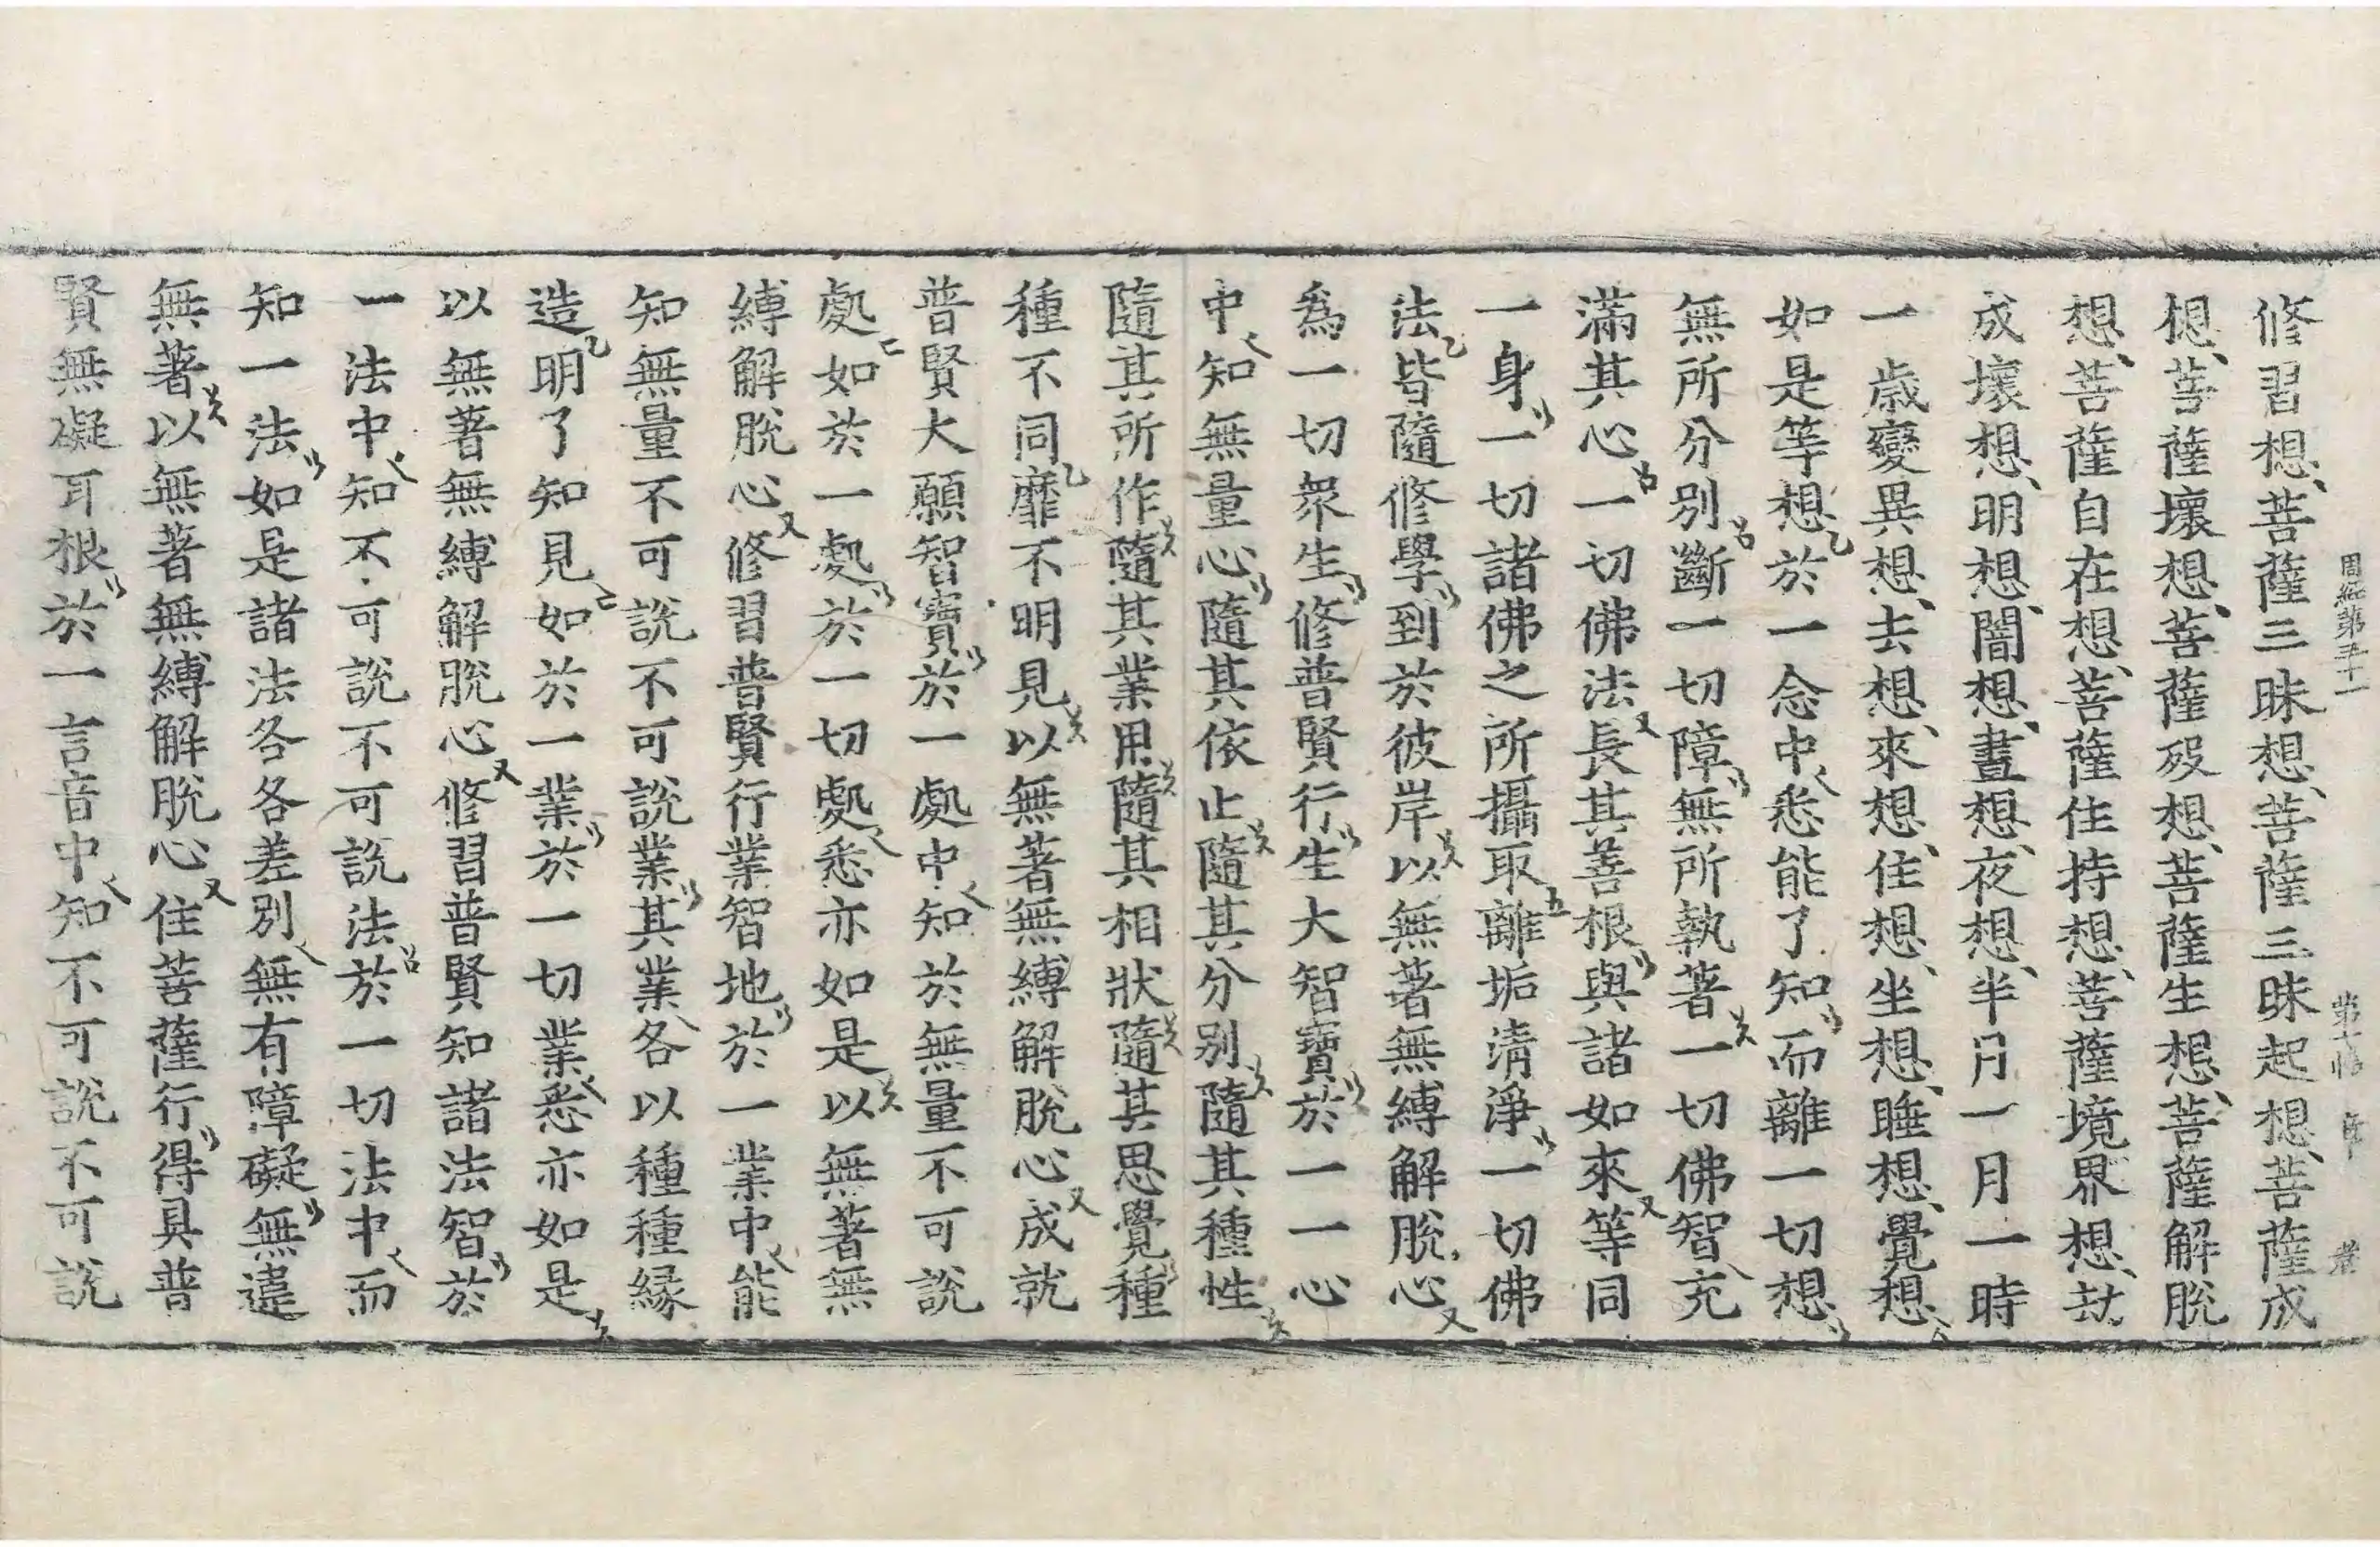 周經第三十一
修習想菩薩三昧想菩薩三昧起想菩薩成
想菩薩壞想菩薩歿想菩薩生想菩薩解脫
想菩薩自在想菩薩住持想菩薩境界想劫
成壞想明想闇想晝想夜想半月一月一時
一歲變異想去想來想住想坐想睡想覺想
如是等想於一念中悉能了知而離一切想
無所分別斷一切障無所執著一切佛智充
滿其心一切佛法長其善根與諸如來等同
一身一切諸佛之所攝取離垢清淨一切佛
法皆隨修學到於彼岸以無著無縛解脫心
為一切眾生修普賢行生大智寶於一一心
中知無量心隨其依止隨其分別隨其種性
隨其所作隨其業用隨其相狀隨其思覺種
種不同靡不明見以無著無縛解脫心成就
普賢大願智寶於一處中知於無量不可說
處如於一處於一切處悉亦如是以無著無
縛解脫心修習普賢行業智地於一業中能
知無量不可說不可說業其業各以種種緣
造明了知見如於一業於一切業悉亦如是
以無著無縛解脫心修習普賢知諸法智於
一法中知不可說不可說法於一切法中而
知一法如是諸法各各差別無有障礙無違
無著以無著無縛解脫心住菩薩行得具普
賢無礙耳根於一言音中知不可說不可說